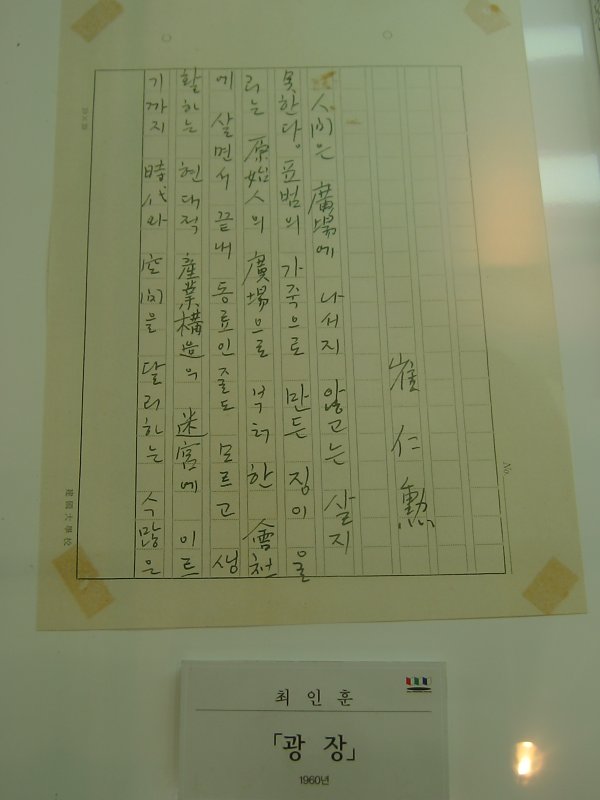 崔仁勳
人間은 廣場에 나서지 않고는 살지
못한다。표범의 가죽으로 만든 징이 울
리는 原始人의 廣場으로 부터 한 會
에 살면서 끝내 동료인줄도 모르고 생
활하는 현대적 産業構造의 迷宮에 이르
기까지 時代와 空間을 달리하는 수많은
No.
建國大學校
최 인 훈
「광 장」
1960년